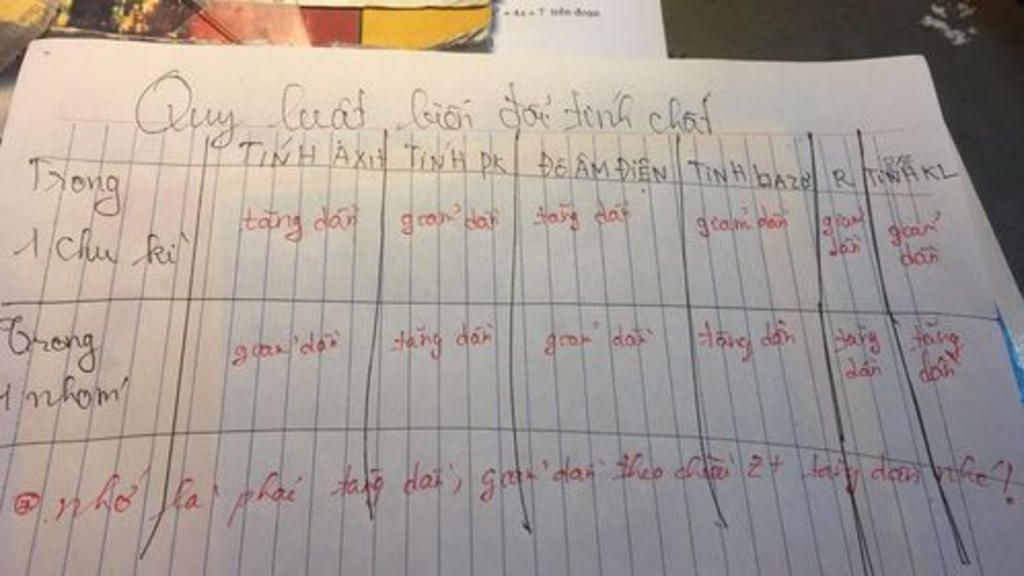 + 4x + 7 trên đoạn
Quy luật biến đổi tính chất
TÍNH AXIT TÍNH PK ĐÔ ÂM ĐIỆN TÍNH bAZƠ R TÍNH KL
Trong 1 chu kì
tăng dần giảm dần tăng dần giảm dần giảm dần giảm dần
Trong 1 nhóm
giảm dần tăng dần giảm dần tăng dần tăng dần tăng dần
nhớ là phải tăng dần, giảm dần theo chiều Z+ tăng dần nhé!